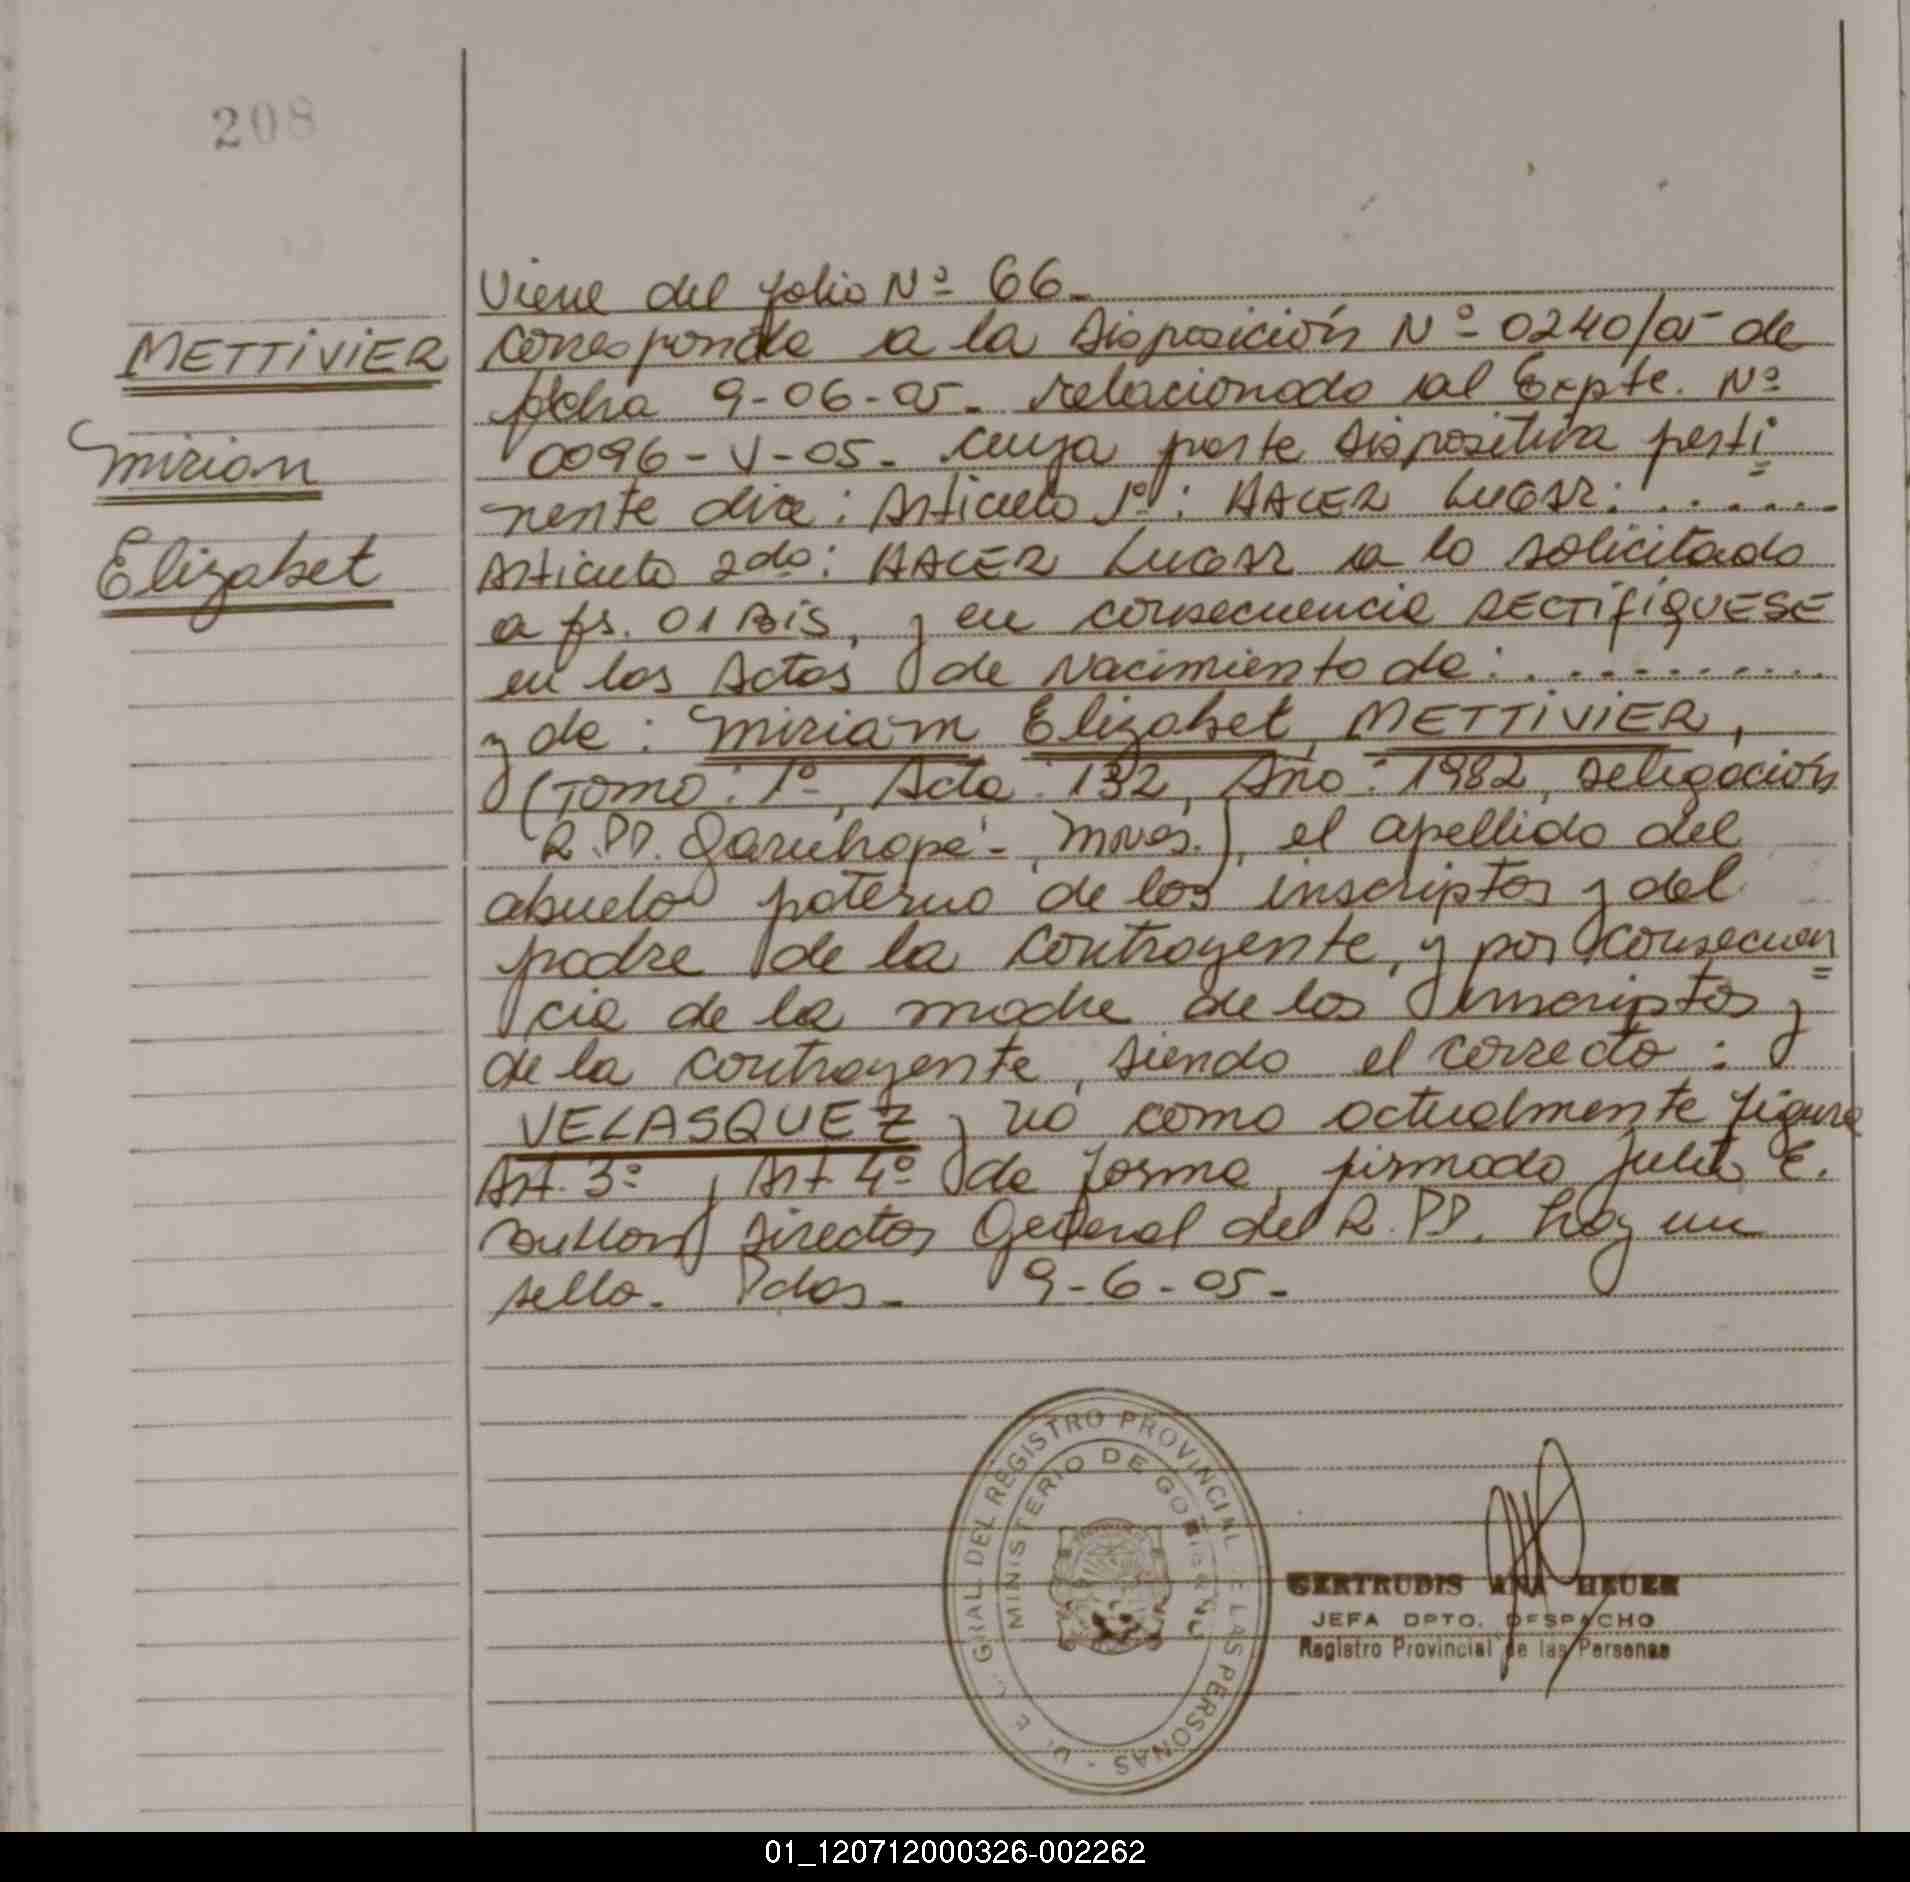 208
METTIVIER
Mirian
Elizabet
Viene del folio Nº 66.
Corresponde a la Disposición Nº 0240/05 de
fecha 9-06-05. relacionado al Expte. Nº
0096-V-05. cuya parte dispositiva perti
nente dice: Articulo 1º: HACER LUGAR: . . . . . .
Articulo 2do: HACER LUGAR a lo solicitado
a fs. 01 Bis, y en consecuencia RECTIFIQUESE
en las Actas de Nacimiento de: . . . . . . . . . .
y de: Miriam Elizabet METTIVIER,
(Tomo: 1º, Acta: 132, Año: 1982, Delegación
R.PP. Garuhapé - Mnes.), el apellido del
abuelo paterno de los inscriptos y del
padre de la contrayente, y por consecuen
cia de la madre de los inscriptos y
de la contrayente, siendo el correcto:
VELASQUEZ y no como actualmente figura
Art. 3º, Art. 4º de forma, firmado Julio E.
Director General del R.PP. hay un
sello. Pdas. 9-6-05.
GRAL DEL REGISTRO PROVINCIAL DE LAS PERSONAS
MINISTERIO DE GOBIERNO
GERTRUDIS ANA HEUER
JEFA DPTO. DESPACHO
Registro Provincial de las Personas
01_120712000326-002262